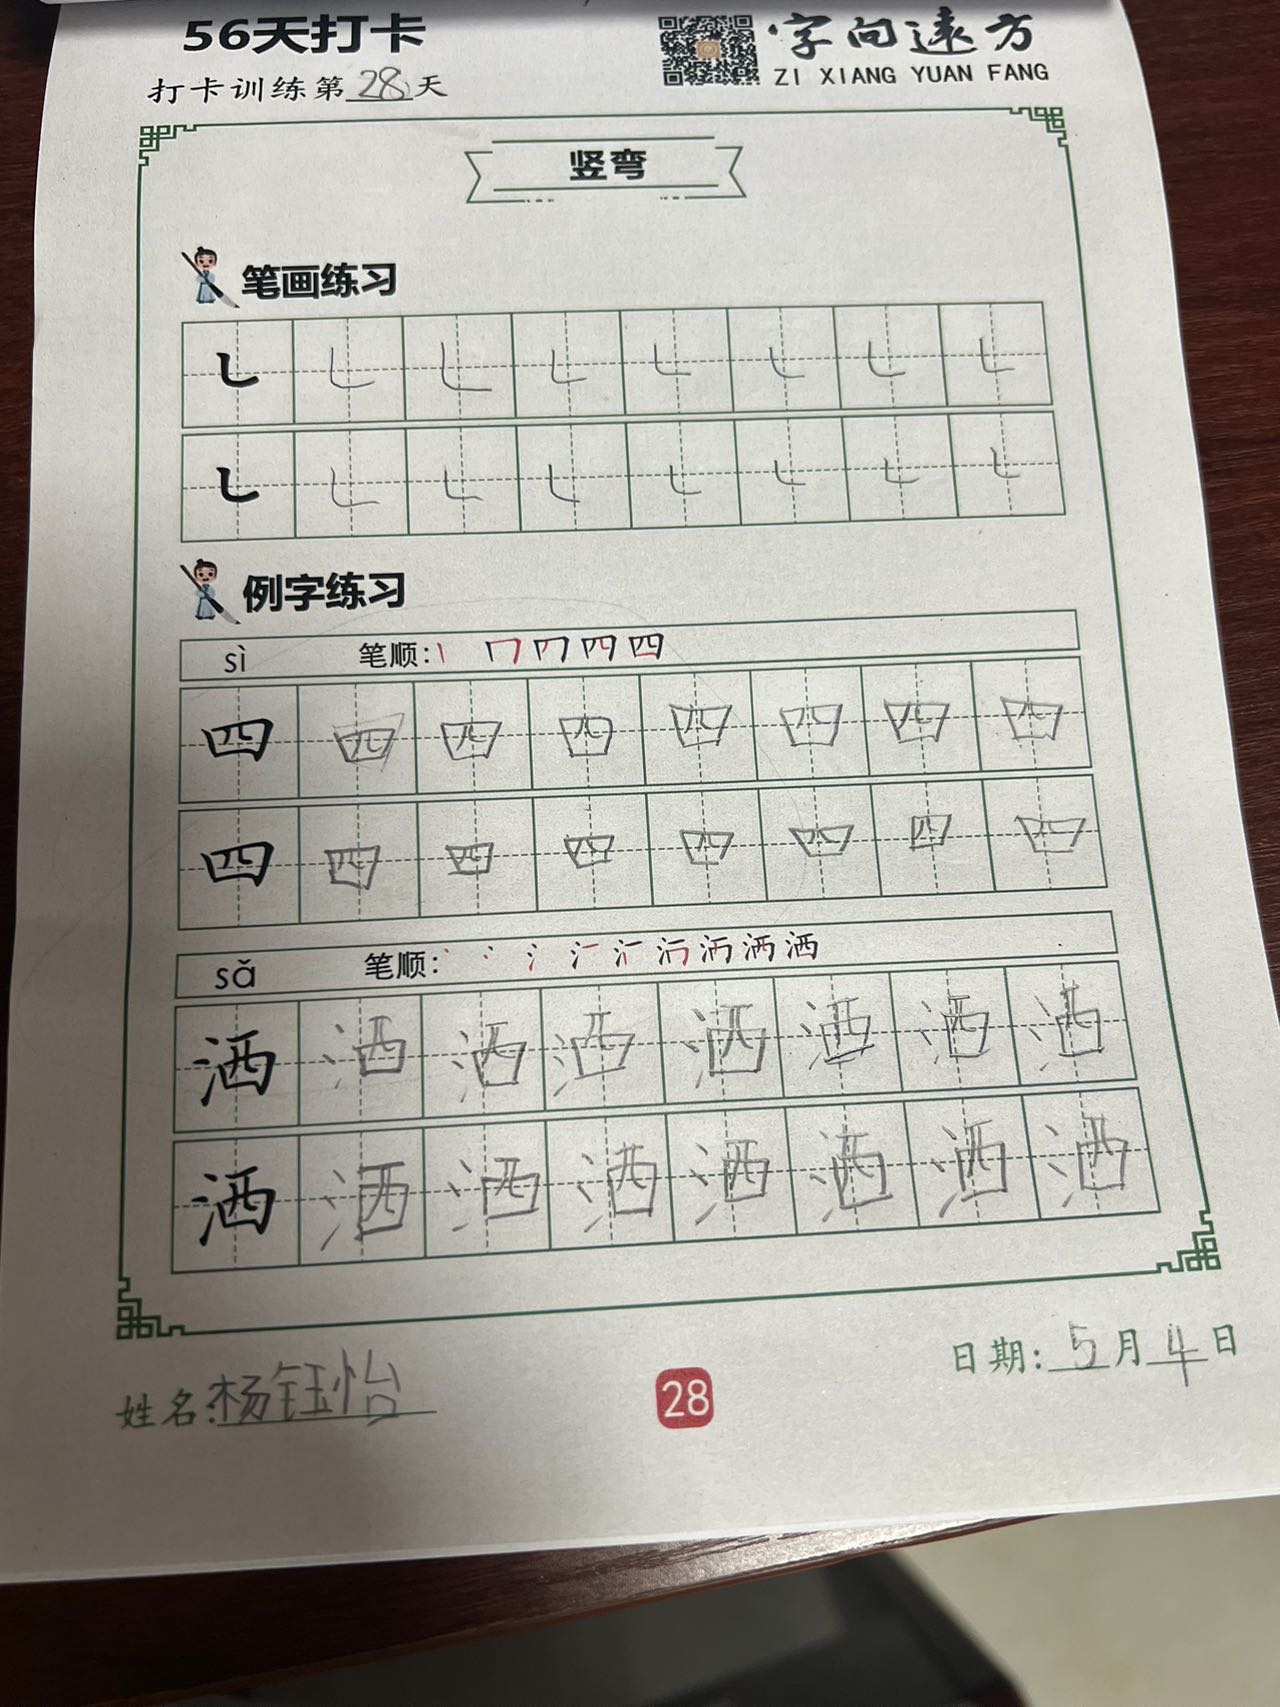 56天打卡
字向遠方
打卡训练第28天
ZI XIANG YUAN FANG
竖弯
笔画练习
例字练习
sì 笔顺: 四
四 四 四 四 四 四 四 四
四 四 四 四 四 四 四 四
sǎ 笔顺: 洒
洒 洒 洒 洒 洒 洒 洒 洒
洒 洒 洒 洒 洒 洒 洒 洒
姓名:杨钰怡
28
日期:5月4日